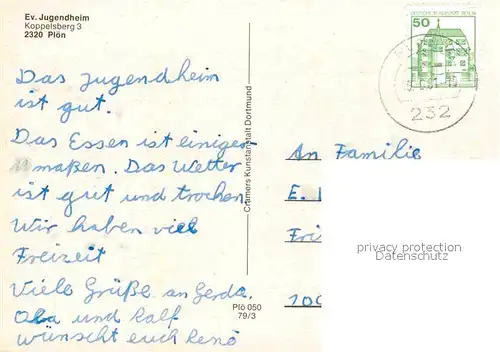 Ev. Jugendheim
Koppelsberg 3
2320 Plön
50
DEUTSCHE BUNDESPOST BERLIN
232
Das Jugendheim
ist gut.
Das Essen ist einiger
maßen. Das Wetter
ist gut und trochen
Wir haben viel
Freizeit
Viele Grüße an Gerda,
Ola und Ralf
wünscht euch René
Cramers Kunstanstalt Dortmund
Plö 050
79/3
An Familie
E.
Fri
100
privacy protection
Datenschutz